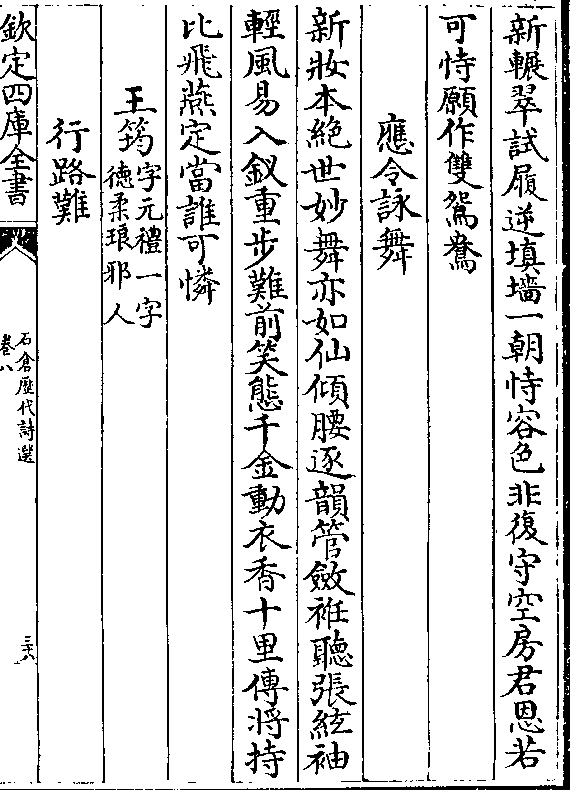 新輾翠試履逆填墻一朝恃容色非復守空房君恩若
可恃願作雙鴛鴦
應令詠舞
新妝本絶世妙舞亦如仙傾腰逐韻管斂袵聽張絃袖
輕風易入釵重步難前笑態千金動衣香十里傳将持
比飛燕定當誰可憐
王筠字元禮一字
德柔琅邪人
行路難
欽定四庫全書
石倉歷代詩選
卷八
三六